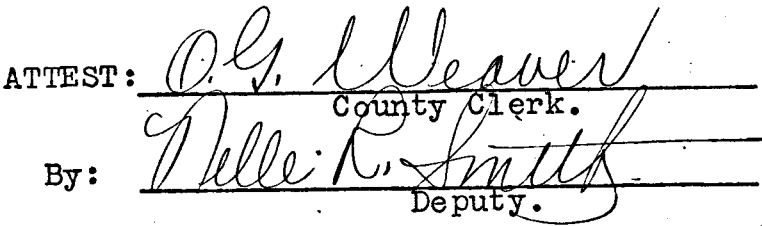 ATTEST: O. G. Weaver
County Clerk.
By: Nelle R. Smith
Deputy.